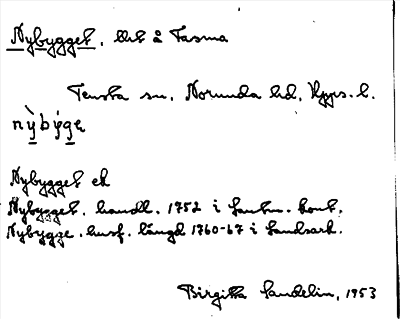 Nybygget, lht å Tasma
Tensta sn, Norunda hd, Upps. l.
nỳbýgє
Nybygget ek
Nybygget. handl. 1752 i Lantm. kont.
Nybygge. husf. längd 1760-67 i Landsark.
Birgitta Sandelin, 1953